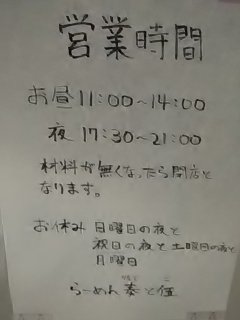 営業時間
お昼 11:00〜14:00
夜 17:30〜21:00
材料が無くなったら閉店と
なります。
お休み 日曜日の夜と
祝日の夜と土曜日の夜と
月曜日
らーめん 奏と伍